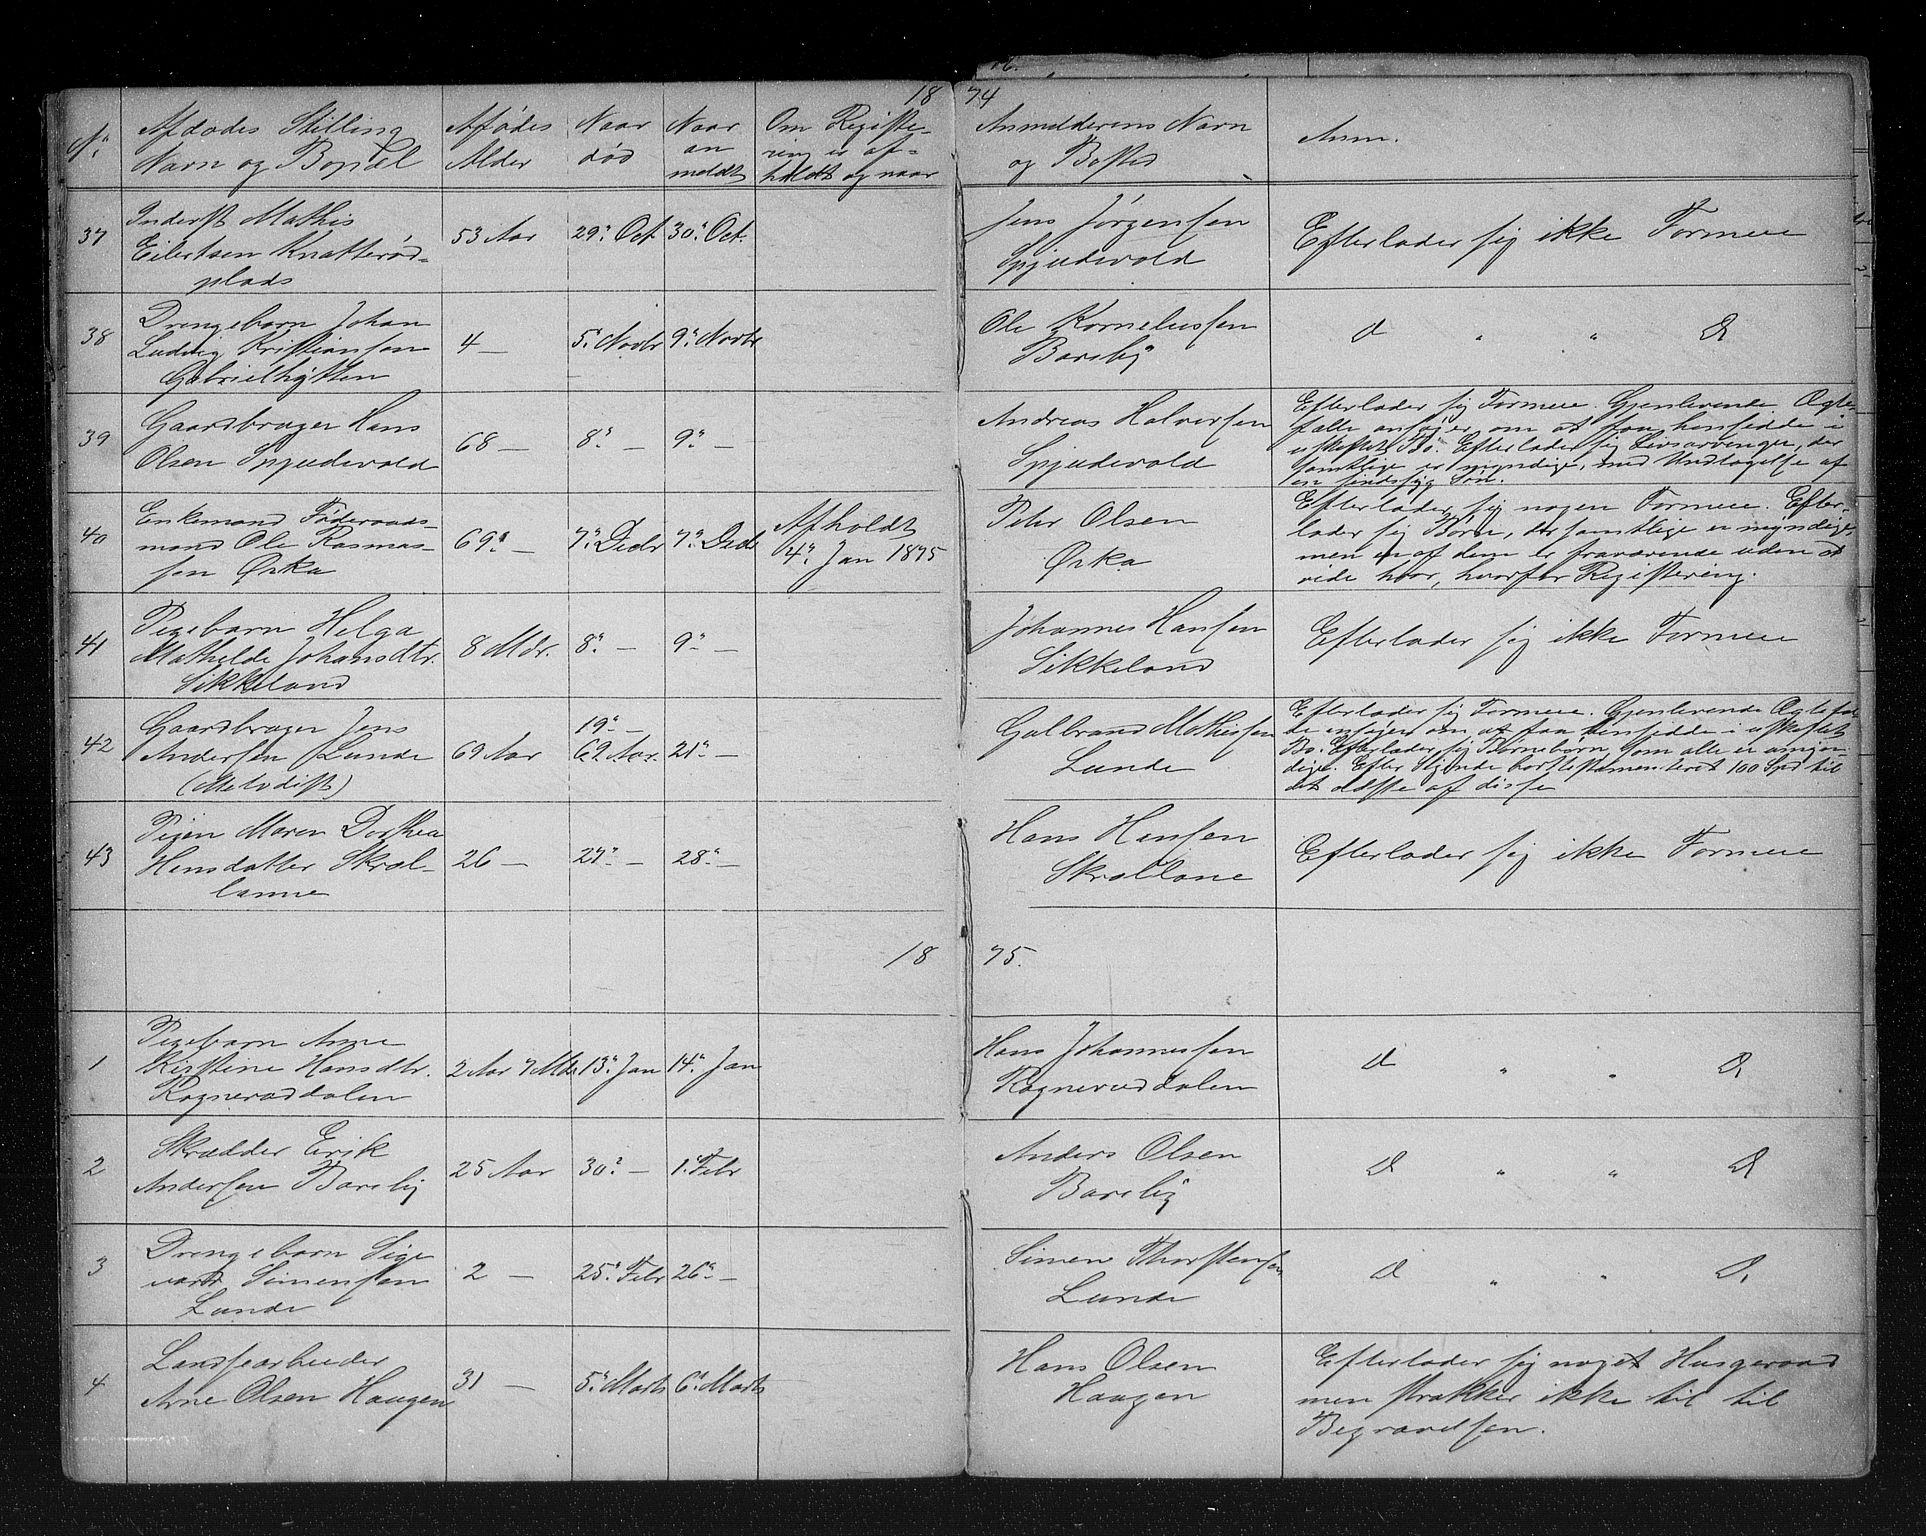 18 74
No
Afdødes Stilling
Navn og Bopæl
Afdødes
Alder
Naar
død
Naar
an
meldt
Om Registe-
ring er af-
holdt og naar
Anmelderens Navn
og Bosted
Anm.
37
Inderst Mathis
Eilertsen Knatterød-
plads
53 Aar
29" Oct
30" Oct.
Jens Jørgensen
Spjudevold
Efterlader sig ikke Formue
38
Drengebarn Johan
Ludvig Kristiansen
Gabrielhytten
4 —
5" Novbr
9" Novbr
Ole Kornelussen
Bareby
d " " D
39
Gaardbruger Hans
Olsen Spjudevold
68 —
8" —
9" —
Andreas Halversen
Spjudevold
Efterlader sig Formue. Gjenlevende Ægte-
fælle ansøger om at faa hensidde i
uskiftet Bo. Efterlader sig Livsarvinger, der
samtlige er myndige, med Undtagelse af
en sindssyg Søn.
40
Enkemand Føderaads-
mand Ole Rasmus-
sen Ørka
69" —
7" Decbr
7" Decb
Afholdt
4" Jan 1875
Peter Olsen
Ørka
Efterlader sig nogen Formue. Efter-
lader sig Børn, der samtlige er myndige,
men en af dem er fraværende uden at
vide hvor, hvorfor Registering.
41
Pigebarn Helga
Mathilde Johansdtr.
Sikkeland
8 Mdr.
8" —
9" —
Johannes Hansen
Sikkeland
Efterlader sig ikke Formue
42
Gaardbruger Jens
Andersen Lunde
(Metodist)
69 Aar
19" —
69 Aar.
21" —
Gulbrand Mathissen
Lunde
Efterlader sig Formue. Gjenlevende Ægtefæl-
de ansøger om at faa hensidde i uskiftet
Bo. Efterlader sig Børnebørn, som alle er umyn-
dige. Efter Sigende borttestamenteret 100 Spd til
det ældste af disse
43
Pigen Maren Dorthea
Hansdatter Skræl-
lanne
26 —
27" —
28" —
Hans Hansen
Skrællane
Efterlader sig ikke Formue
18 75.
1
Pigebarn Anne
Kirstine Hansdtr.
Rogneruddalen
2 Aar 7 Mdr
13" Jan
14" Jan
Hans Johannessen
Rogneruddalen
D " " D.
2
Skrædder Erik
Andersen Bareby
25 Aar
30" —
1" Febr
Anders Olsen
Bareby
D " " D
3
Drengebarn Sige
vard Simensen
Lunde
2 —
25" Febr
26" —
Simen Thorstensen
Lunde
D " " D.
4
Landsearbeider
Arne Olsen Haugen
31 —
5" Marts
6" Marts
Hans Olsen
Haugen
Efterlader sig noget Husgeraad
men strækker ikke til til
Begravelsen.